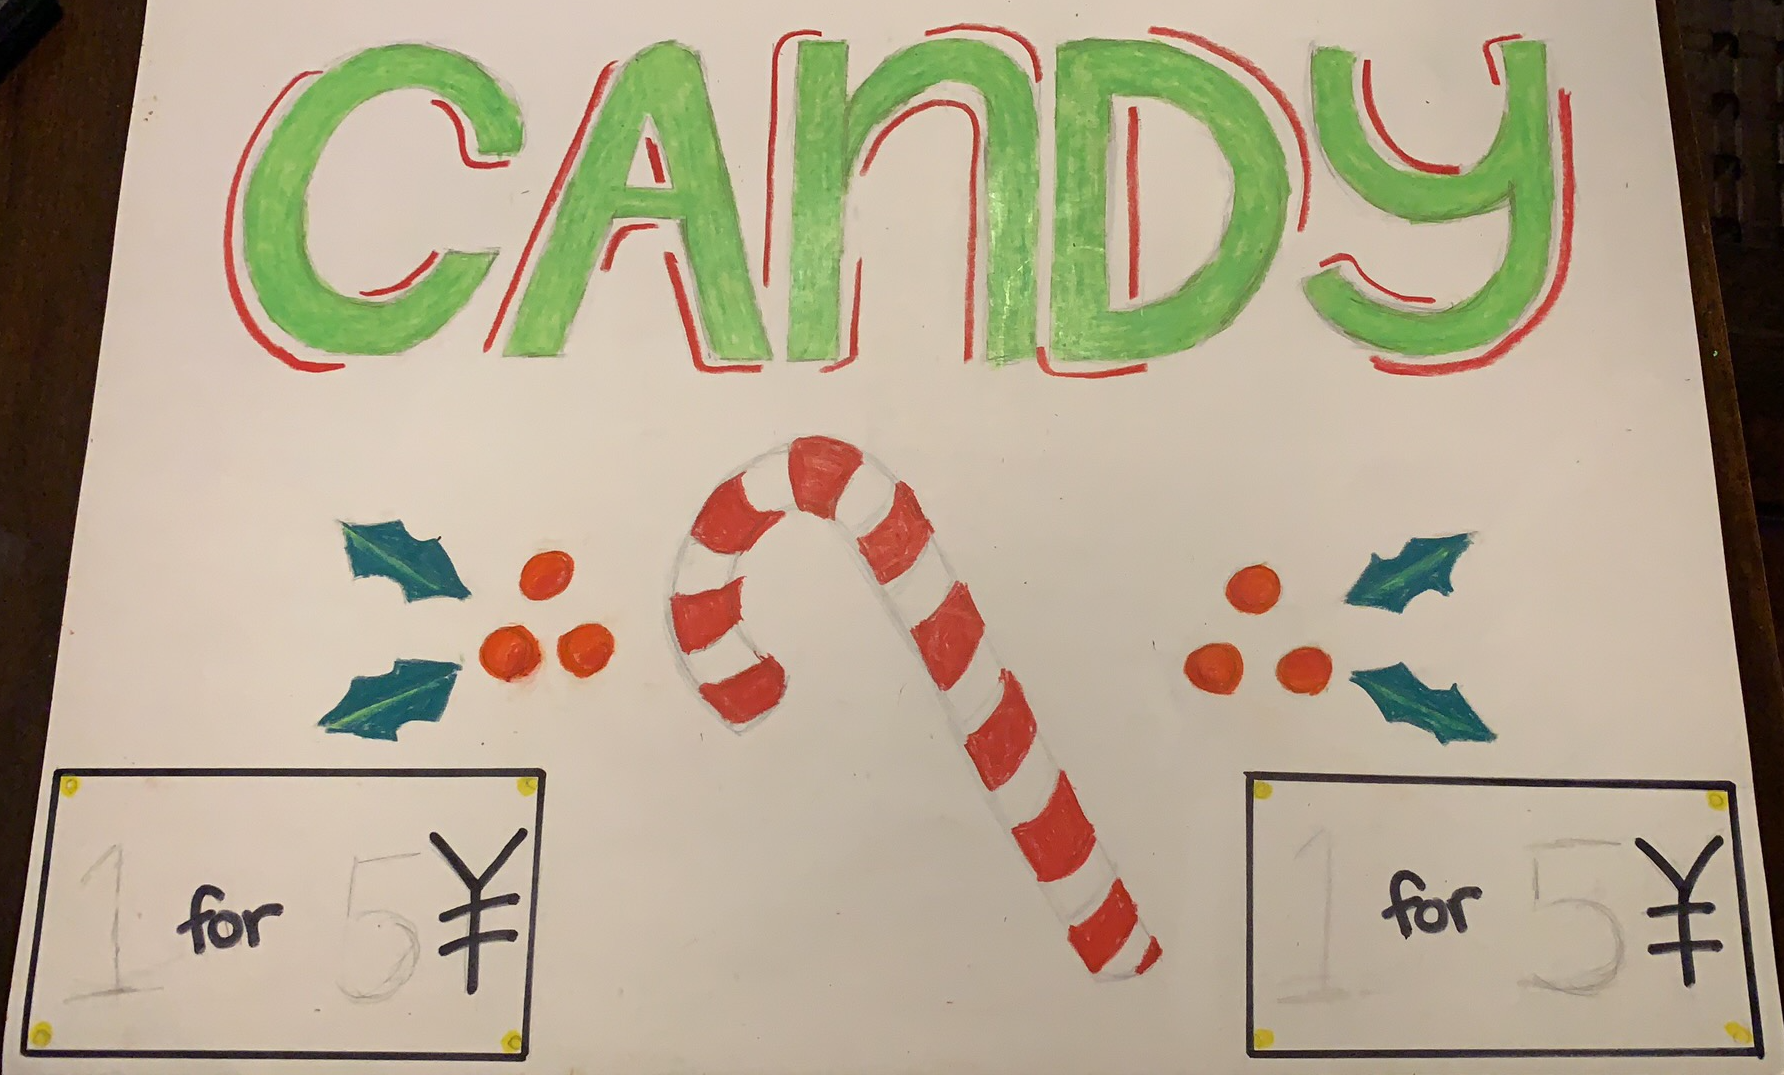 CAnDy
1 for 5 ¥
1 for 5 ¥